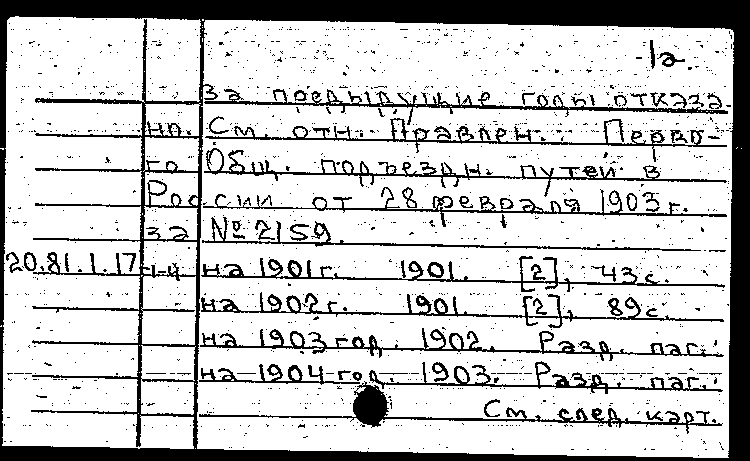 1а.
За предыдущие годы отказа-
но. См. отн. Правлен. Перво-
го Общ. подъездн. путей в
России от 28 февраля 1903 г.
за № 2159.
20.81.1.17/1-4 на 1901 г. 1901. [2], 43 с.
на 1902 г. 1901. [2], 89 с.
на 1903 год. 1902. Разд. паг.
на 1904 год. 1903. Разд. паг.
См. след. карт.